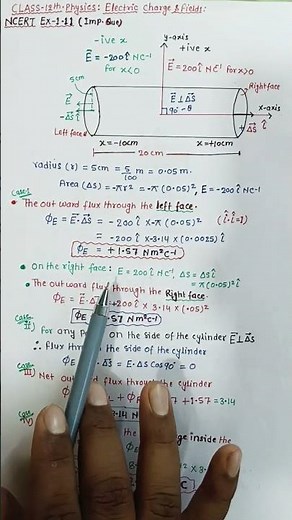 CLASS-12th, Physics: Electric Charge & fields:
NCERT Ex-1.11 (Imp. Que)
-ive x
y-axis
+ive x
E⃗ = -200 î N C⁻¹
for x<0
E⃗ = 200 î N C⁻¹ for x>0
5cm
Right face
E⃗ ⊥ ΔS⃗
90° = θ
x-axis
E⃗
-ΔS⃗ î
+ ΔS⃗ î
Left face
x=-10cm
x=+10cm
20 cm
radius (r) = 5cm = 5/100 m = 0.05m.
Area (ΔS) = -πr² = -π (0.05)², E = -200 NC⁻¹
Case I
The out ward flux through the left face.
Φ_E = E⃗.ΔS⃗ = -200 î × -π (0.05)² (î.î=1)
= -200 î × 3.14 × (0.0025) î
Φ_E = +1.57 Nm²C⁻¹
On the right face: E = 200 î N C⁻¹, ΔS = ΔS î
= π(0.05)² î
The outward flux through the Right face.
Φ_E = E⃗.ΔS⃗ = +200 î × 3.14 × (.05)²
1.57 Nm²C⁻¹
Case II)
For any point on the side of the cylinder E⃗ ⊥ ΔS⃗
∴ flux through the side of the cylinder
Φ_E = E⃗.ΔS⃗ = E.ΔS Cos 90° = 0
Case III)
Net outward flux through the cylinder
+ 1.57 = 3.14
inside the